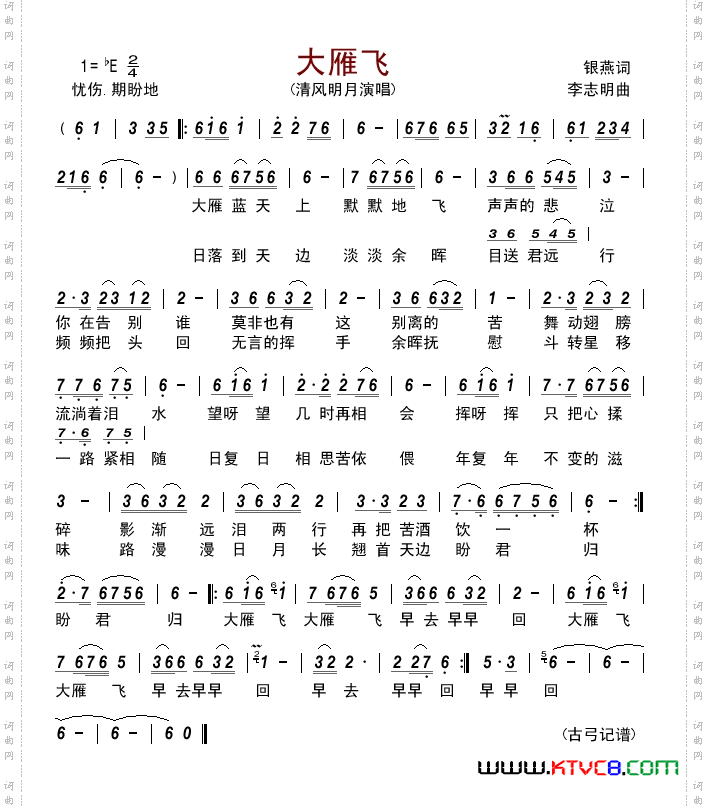 大雁飞
1=♭E 2/4
银燕词
忧伤.期盼地
(清风明月演唱)
李志明曲
( 6 1 | 3 3 5 ‖: 6 1 6 1 | 2 2 7 6 | 6 - | 6 7 6 6 5 | 3 2 1 6 | 6 1 2 3 4 |
2 1 6 6 | 6 - ) | 6 6 6 7 5 6 | 6 - | 7 6 7 5 6 | 6 - | 3 6 6 5 4 5 | 3 - |
大雁 蓝 天 上 默 默 地 飞 声声的 悲 泣
3 6 5 4 5 |
日落 到 天 边 淡 淡 余 晖 目送 君远 行
2·3 2 3 1 2 | 2 - | 3 6 6 3 2 | 2 - | 3 6 6 3 2 | 1 - | 2·3 2 3 2 |
你 在告 别 谁 莫非也有 这 别离的 苦 舞 动翅 膀
频 频把 头 回 无言的挥 手 余晖抚 慰 斗 转星 移
7 7 6 7 5 | 6 - | 6 1 6 1 | 2·2 2 7 6 | 6 - | 6 1 6 1 | 7·7 6 7 5 6 |
流淌着泪 水 望呀 望 几 时再相 会 挥呀 挥 只 把心 揉
7·6 7 5 |
一 路 紧相 随 日复 日 相 思苦依 偎 年复 年 不 变的 滋
3 - | 3 6 3 2 | 3 6 3 2 | 2 | 3·3 2 3 | 7·6 6 7 5 6 | 6 - :‖
碎 影 渐 远 泪 两 行 再 把 苦酒 饮 一 杯
味 路 漫 漫 日 月 长 翘 首 天边 盼 君 归
2·7 6 7 5 6 | 6 - ‖: 6 1 6 6 1 | 7 6 7 6 5 | 3 6 6 6 3 2 | 2 - | 6 1 6 6 1 |
盼 君 归 大雁 飞 大雁 飞 早 去 早早 回 大雁 飞
7 6 7 6 5 | 3 6 6 6 3 2 | 2 1 - | 3 2 2· | 2 2 2 7 6 :‖ 5·3 | 5 6 - | 6 - |
大雁 飞 早 去早早 回 早 去 早早 回 早 早 回
6 - | 6 - | 6 0 ‖
(古弓记谱)
www.KTVC8.COM